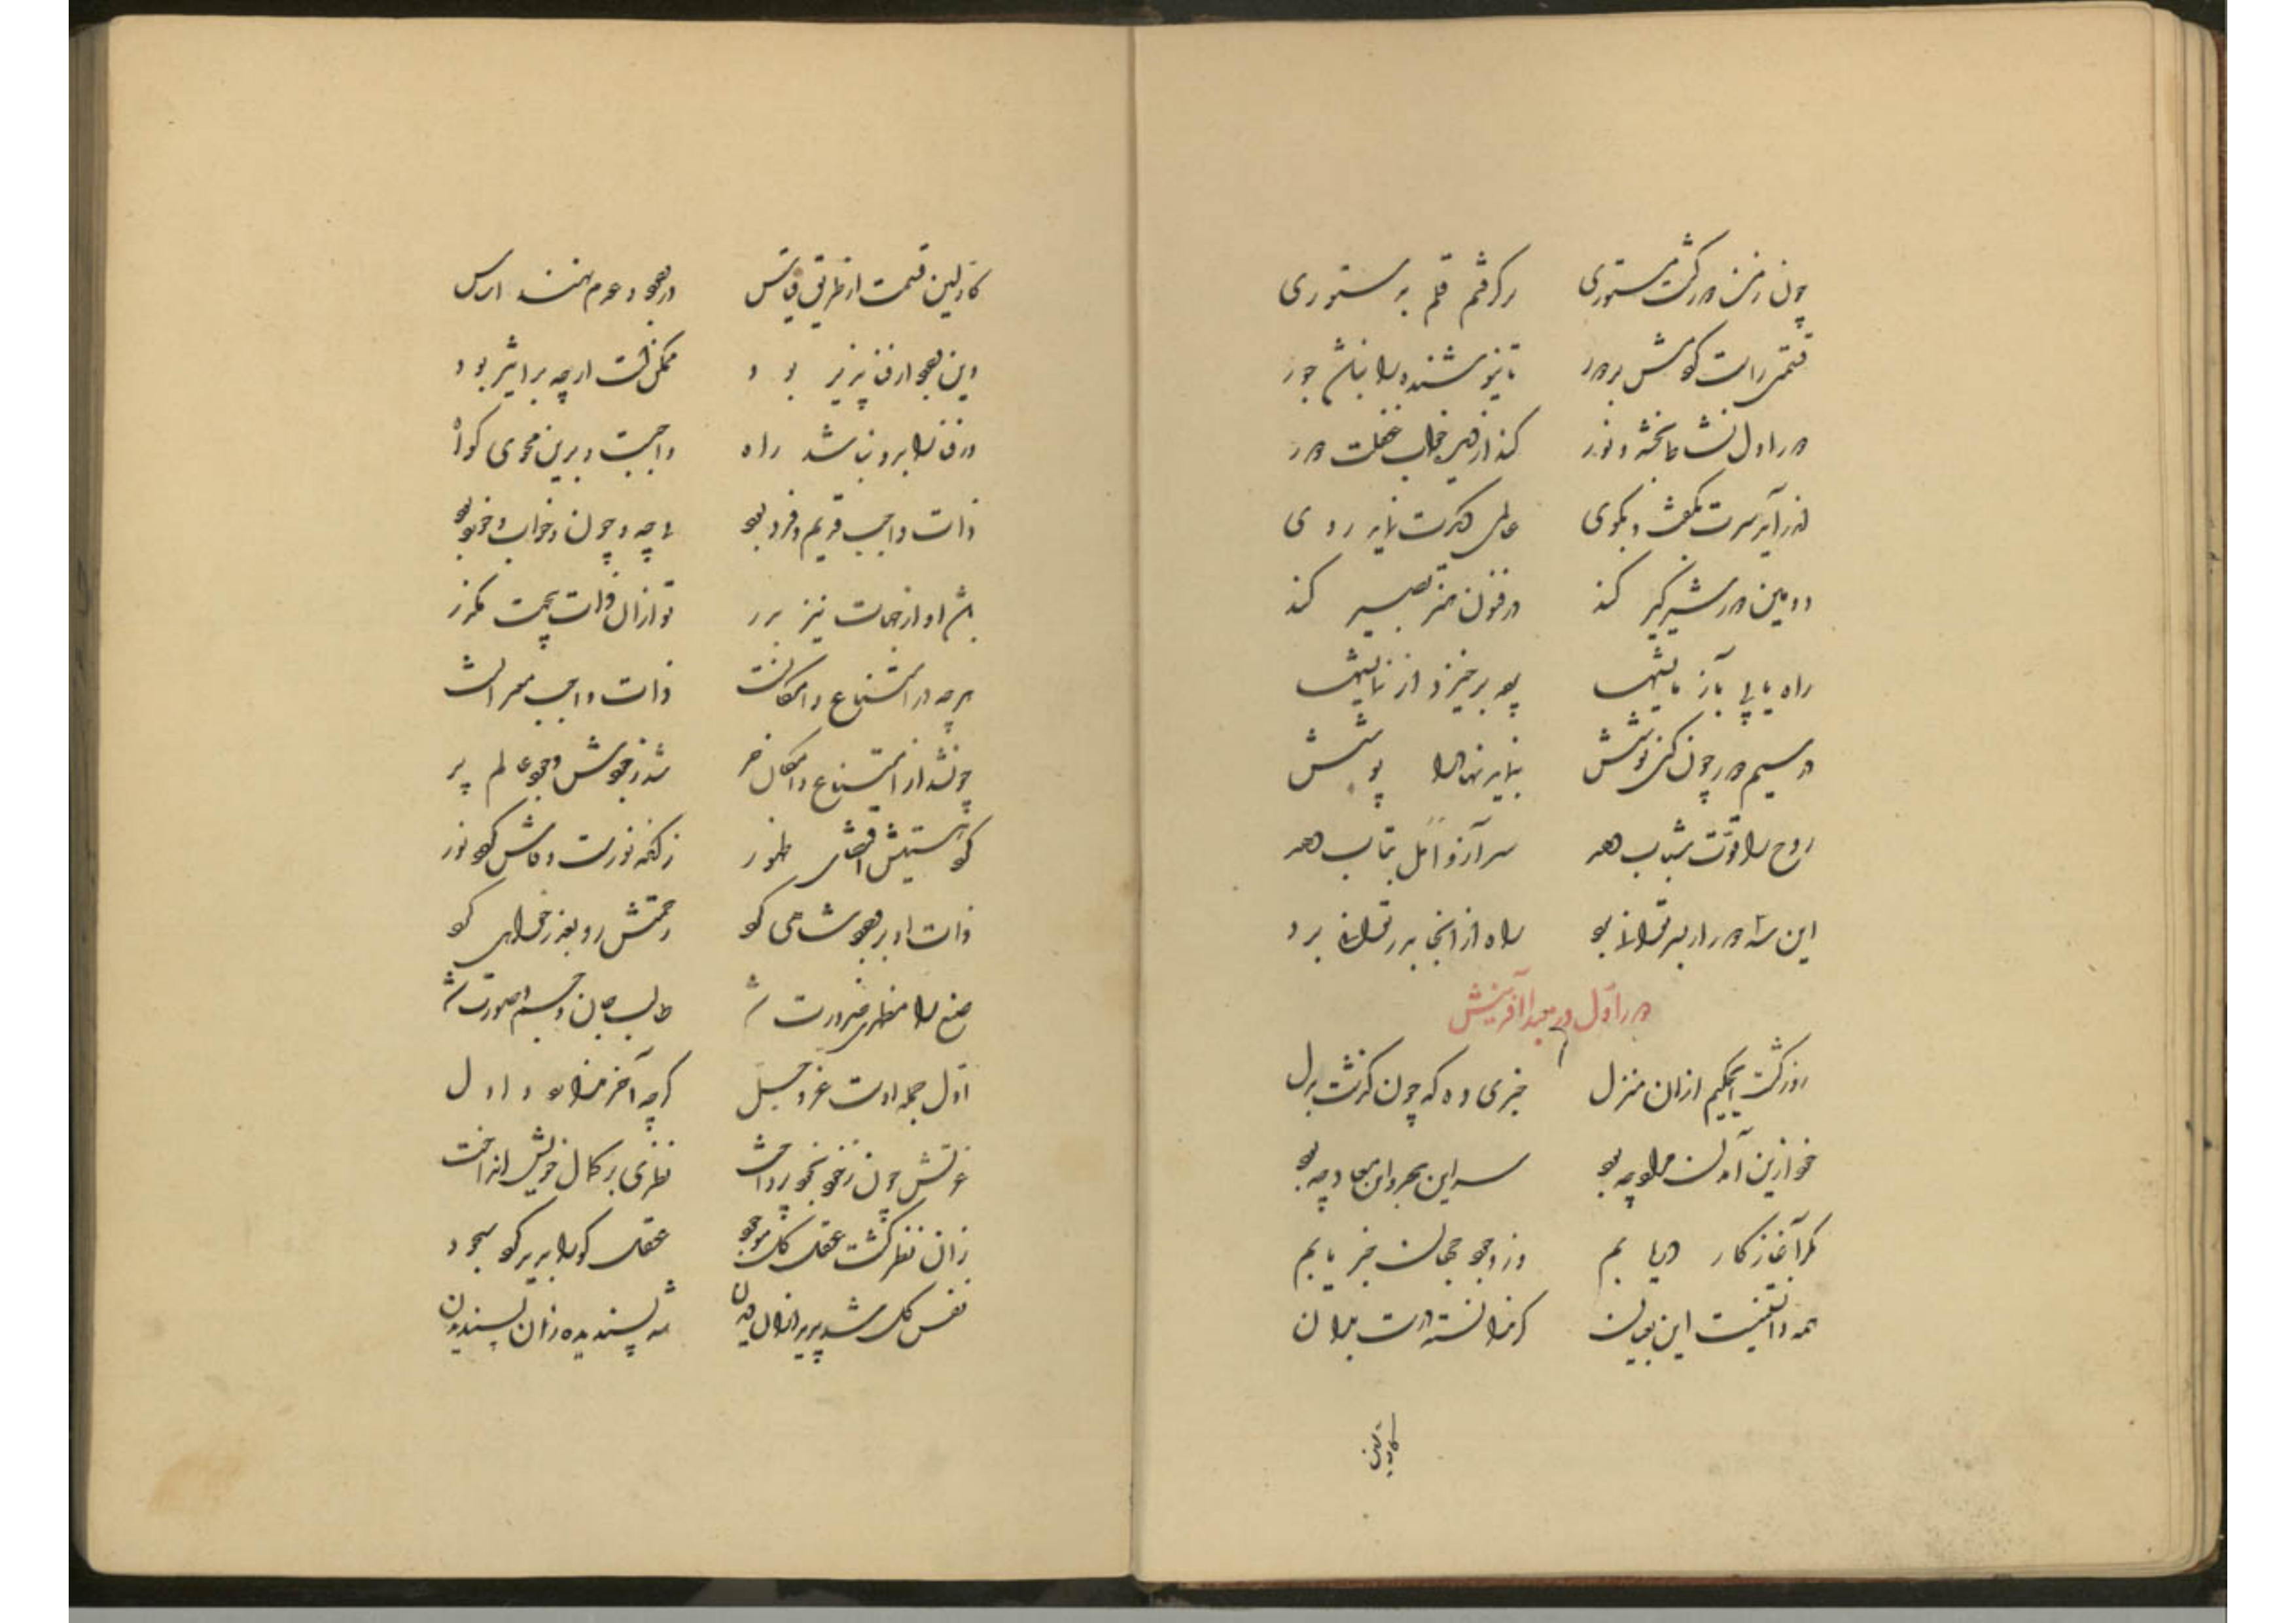 چون زمن در گذشت مستوری برگرفتم قلم به دستوری
قسمتی راست کردمش بر دور تا نیوشنده را نباشد جور
دور اول نشاط بخشد و نور کند از دیده خواب غفلت دور
اندر آید سرت بگفت و بگوی عالمی دیگرت نماید روی
دومین دور شیرگیر کند در فنون هنر بصیر کند
راه یابی بآزمایشها برخیزد از نمایشها
در سیم دور چون کنی نوشش نماید نهاد را پوشش
روح را قوّت شباب دهد سر آز و امل بتاب دهد
این سه دور ار بسر توانی برد راه از اینجا بدر توانی برد
دور اوّل در مبدأ آفرینش
ای حکیم ازان منزل خبری ده که چون گذشت بدل
خود ازین آمدن مراد چه بود سر این هجر و این بعاد چه بود
مگر آغاز کار دریابم وز وجود جهان خبر یابم
همه دانستنیست این گر ندانسته درست بدان
کاولین
کاولین قسمت از طریق قیاس در وجود و عدم نهند اساس
وین وجود ار فنا پذیر بود ممکنست ارچه بر اثیر بود
ور فنا را برو نباشد راه واجبست و برین مجوی گواه
ذات واجب قدیم و فرد بود نه چه و چون و خواب و خورد بود
باشد او از جهات نیز بدر تو ازان ذات بی جهت مگذر
هرچه در امتناع و امکانست ذات واجب مبرا زانست
چونشد از امتناع و امکان حر شد ز جودش وجود عالم پر
کرد هستیش اقتضای ظهور زانکه نورست و فاش گردد نور
ذات او بر وجود شاهی کرد رحمتش رو کرد
صنع را مظهری ضرورت شد طالب جان و جسم و صورت شد
اوّل جمله اوست عز و جل گرچه آخر ندارد و اول
عزتش چون ز خود بخود پرداخت نظری بر کمال خویش انداخت
زان نظر گشت عقل کل موجود عقل کو را بدید کرد سجود
نفس کل شد پدید ازان دیدن شد پسندیده زان پسندیدن